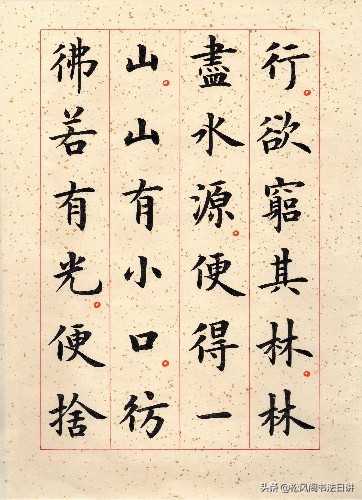 行欲窮其林林
盡水源便得一
山山有小口彷
彿若有光便捨
头条@松风阁书法日讲